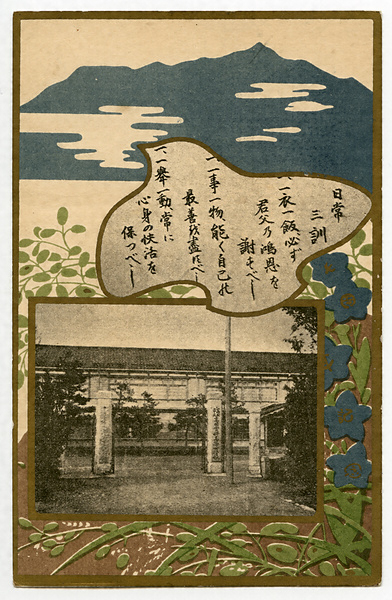 日常
三訓
一、一衣一飯必ず
君父乃鴻恩を
謝すべし
一、一事一物、能く自己の
最善を盡すべし
一、一舉一動常に
心身の快活を
保つべし